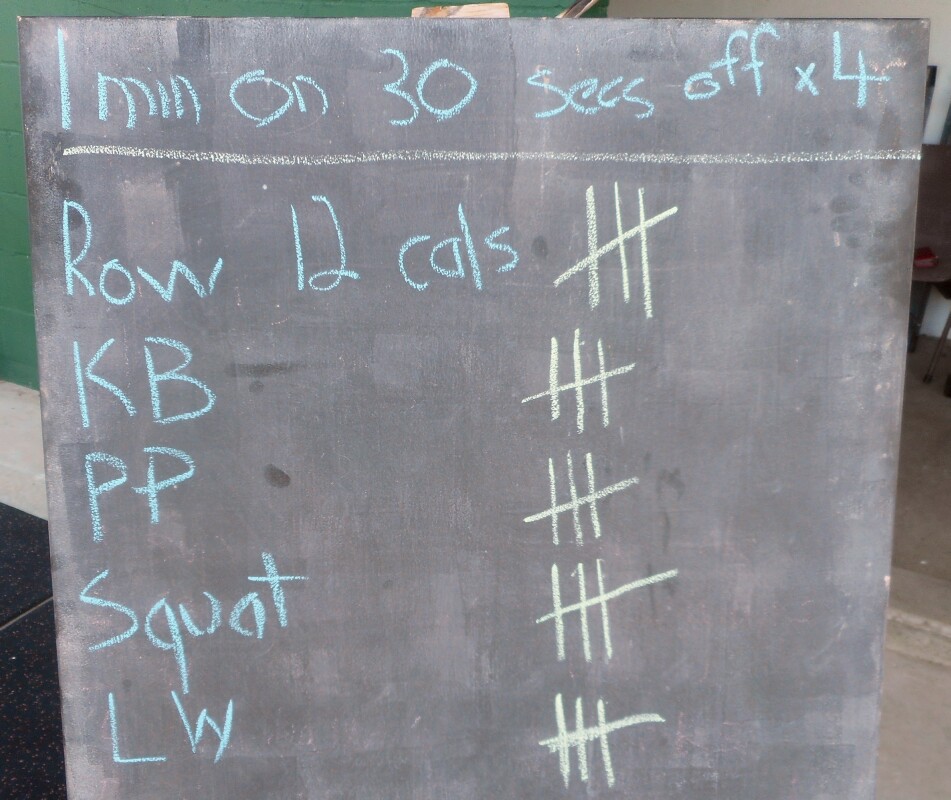 1 min on 30 secs off x 4
Row 12 cals
KB
PP
Squat
LW